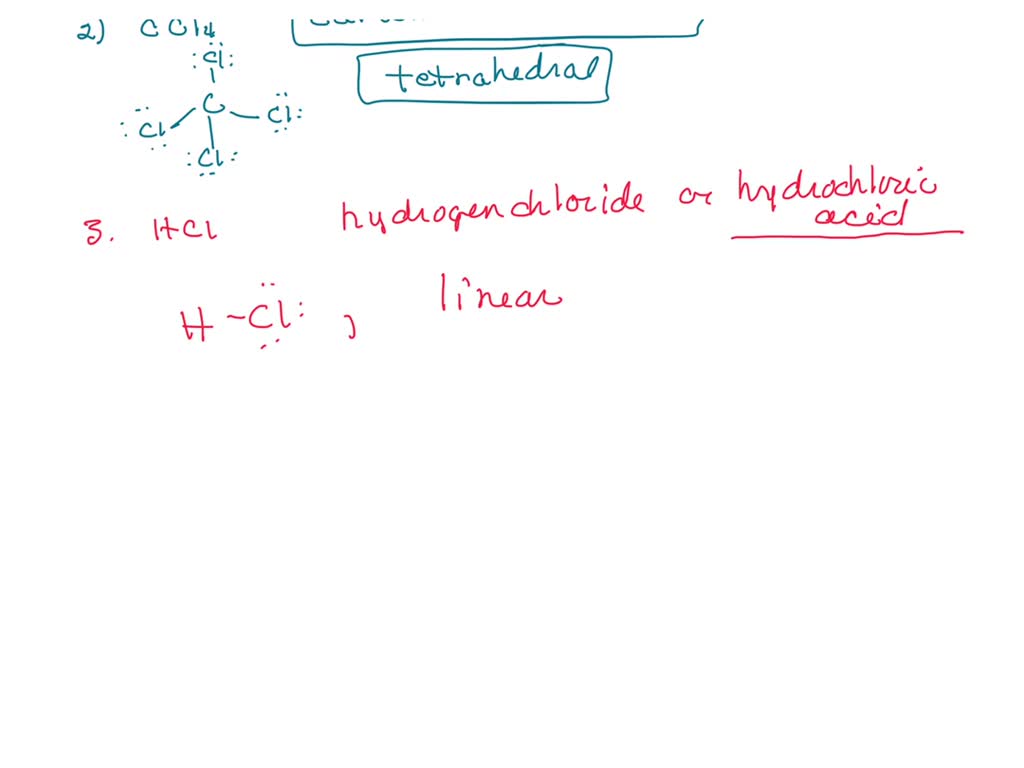 2) CCl4
tetrahedral
:Cl:
C
:Cl
Cl:
:Cl:
3. HCl hydrogenchloride or hydrochloric
acid
H-Cl: , linear